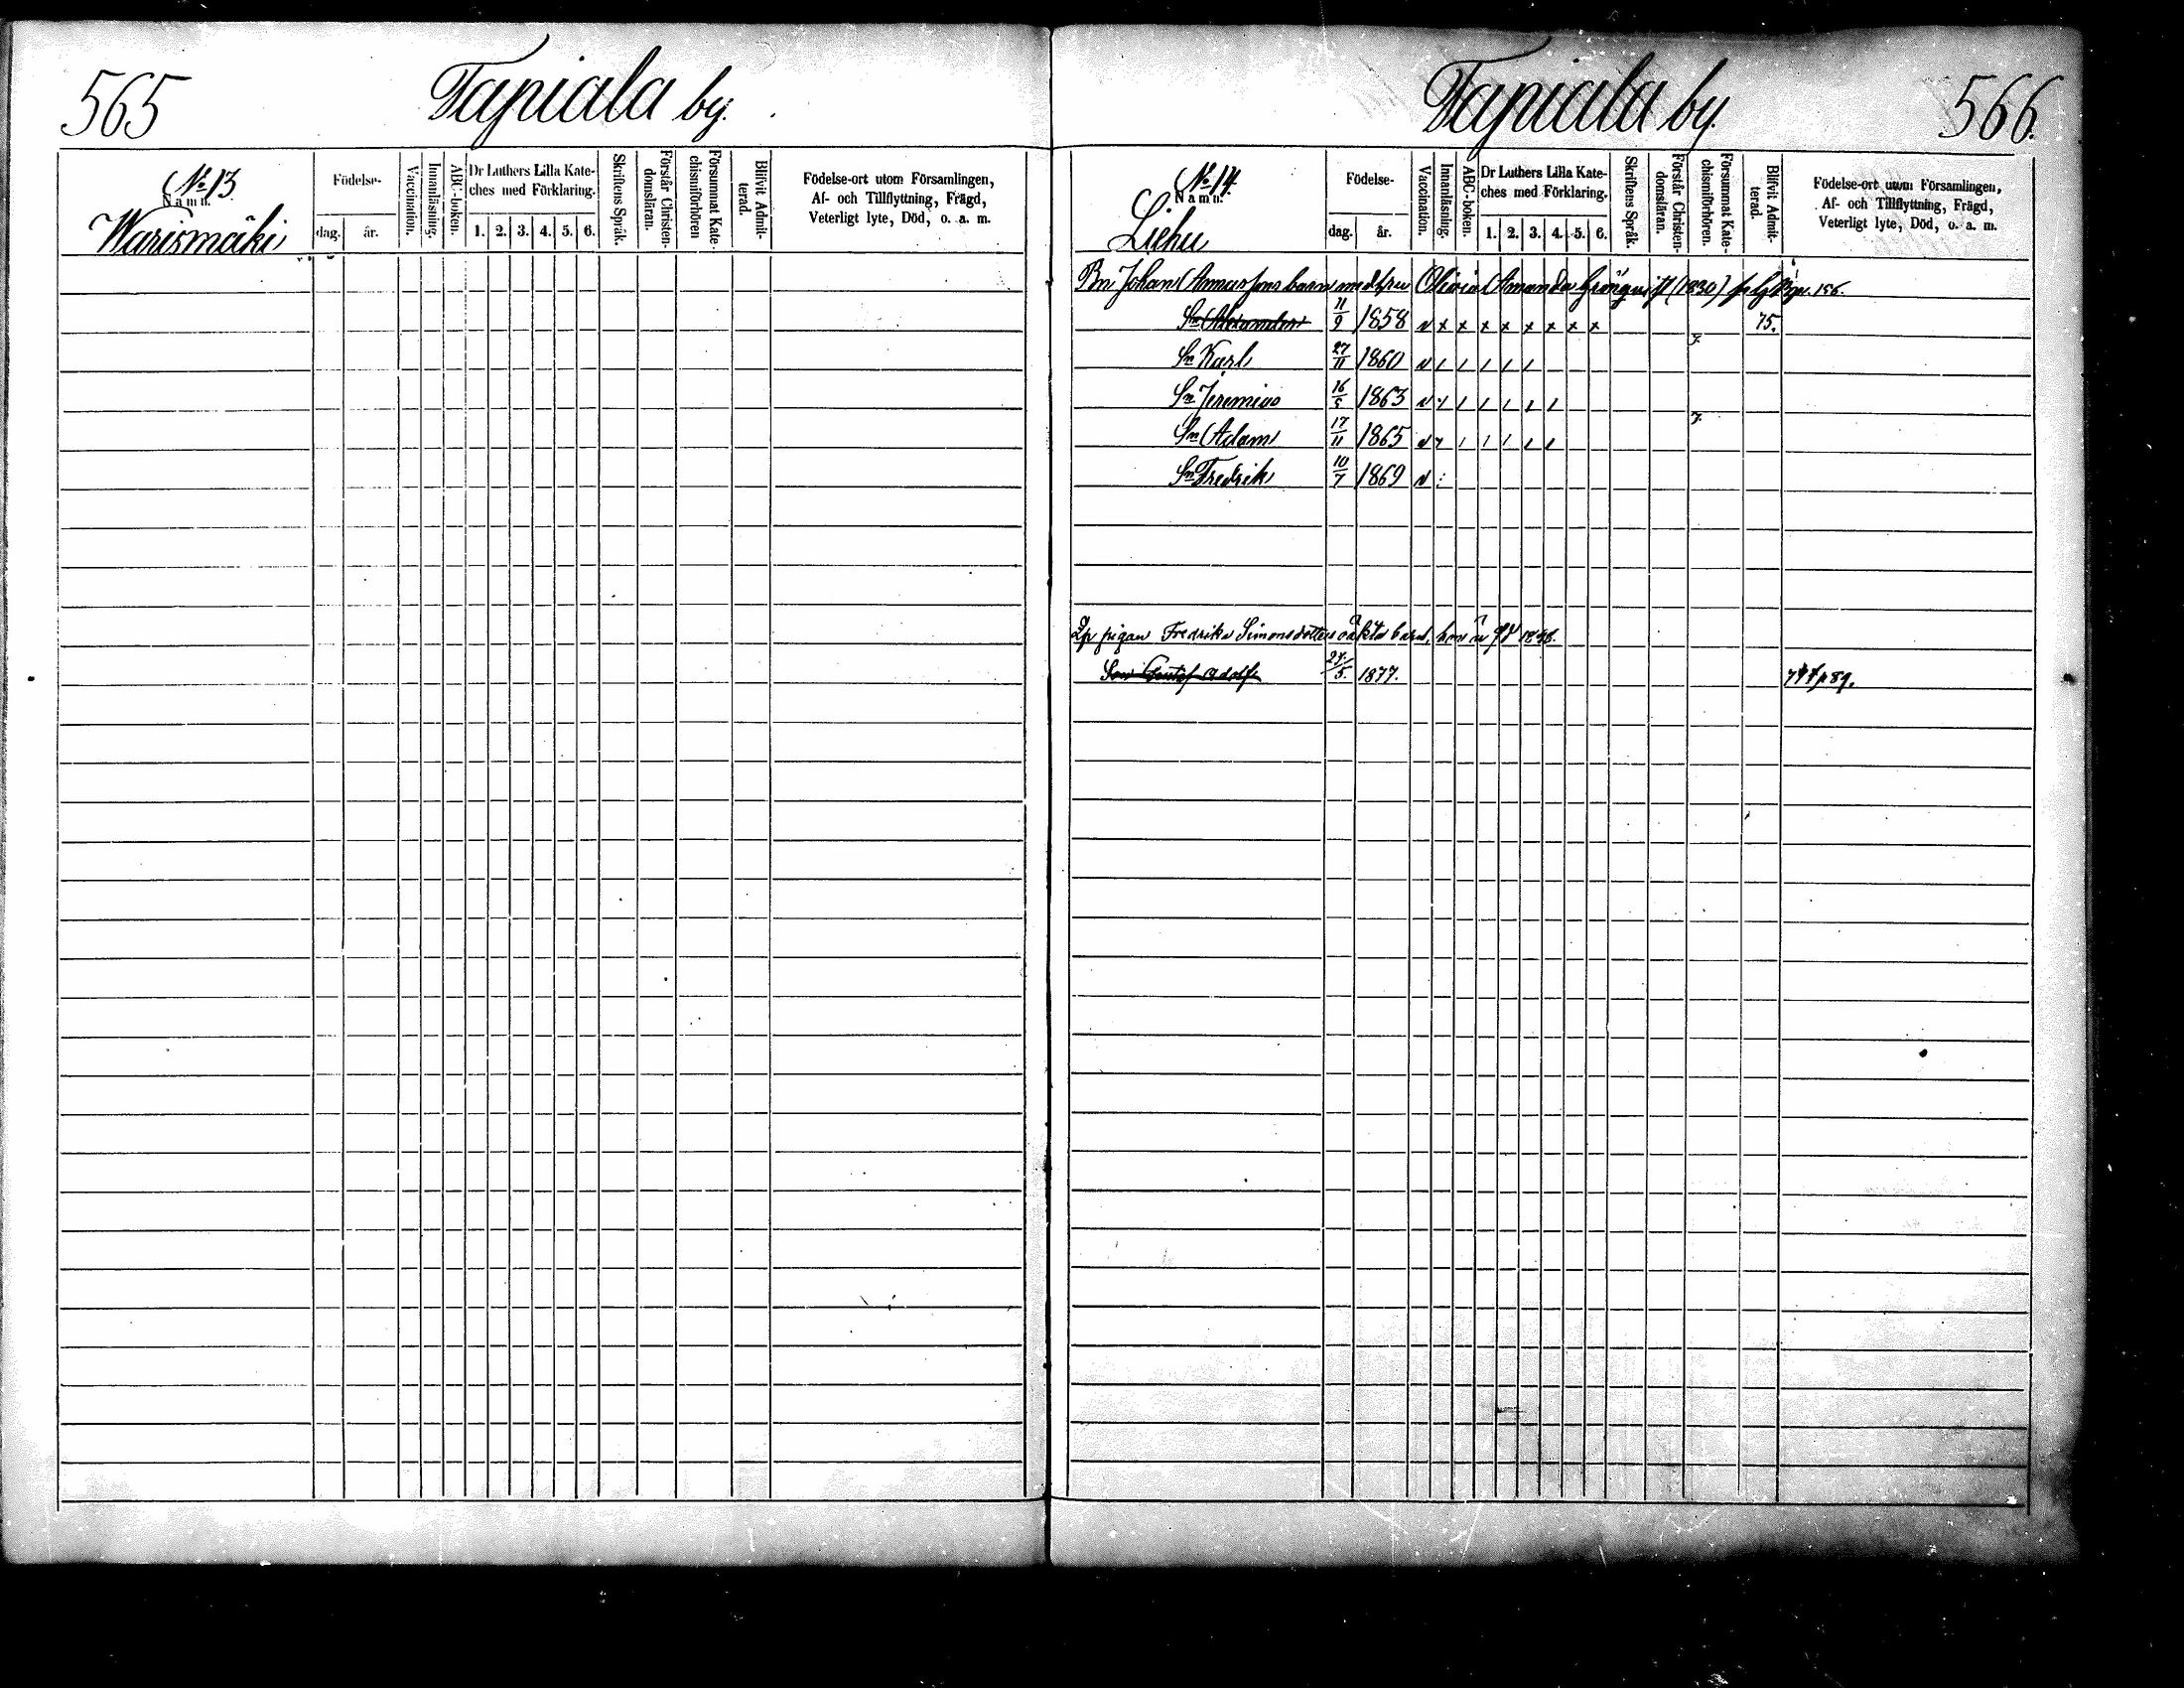 565
Tapiala by.
No 13
Namn.
Warismäki
Födelse-
dag.
år.
Vaccination.
Innanläsning.
ABC-boken.
Dr Luthers Lilla Kate-
ches med Förklaring.
1. 2. 3. 4. 5. 6.
Skriftens Språk.
Förstår Christen-
domsläran.
Försummat Kate-
chismiförhören
Blifvit Admit-
terad.
Födelse-ort utom Församlingen,
Af- och Tillflyttning, Frägd,
Veterligt lyte, Död, o. a. m.
Tapiala by.
566.
No 14.
Namn.
Liehu
Födelse-
dag.
år.
Vaccination.
Innanläsning.
ABC-boken.
Dr Luthers Lilla Kate-
ches med Förklaring.
1. 2. 3. 4. 5. 6.
Skriftens Språk.
Förstår Christen-
domsläran.
Försummat Kate-
chismiförhören.
Blifvit Admit-
terad.
Födelse-ort utom Församlingen,
Af- och Tillflyttning, Frägd,
Veterligt lyte, Död, o. a. m.
Bn Johan barn med hru Olivia Amanda (1830) 156.
Sn Alexander 11/9 1858 v x x x x x x x x 75.
Sn Karl 27/11 1860 v / / / / / 7.
Sn Jeremias 16/5 1863 v / / / / / /
Sn Adam 17/11 1865 v / / / / / 7.
Sn Fredrik 10/7 1869 v :
pigan Fredrika Simonsdotters oäkta barn, hon är
Son Gustaf Adolf 1877. p 89.